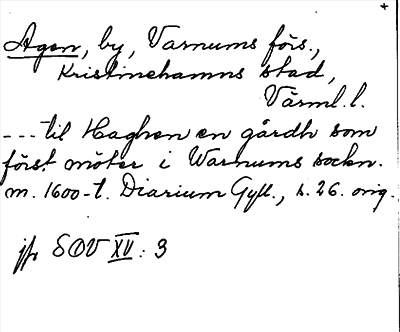 Agen, by, Varnums förs.,
Kristinehamns stad,
Värml.l.
--- til Haghen en gårdh som
först möter i Warnums sockn.
m. 1600-t. Diarium Gyll., s. 26. orig.
jfr SOV XV: 3